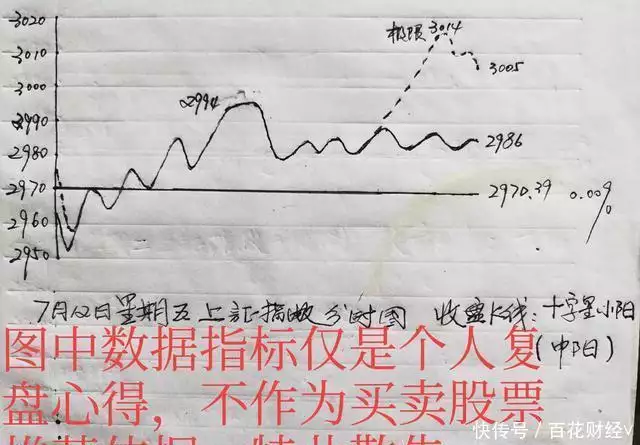 3020
3010
3000
2990
2980
2970
2960
2950
极限 3014
3005
2994
2986
2970.39 0.00%
7月12日星期五上证指数分时图 收盘K线:十字星小阳
(中阳)
图中数据指标仅是个人复
盘心得,不作为买卖股票
快传号 / 百花财经v